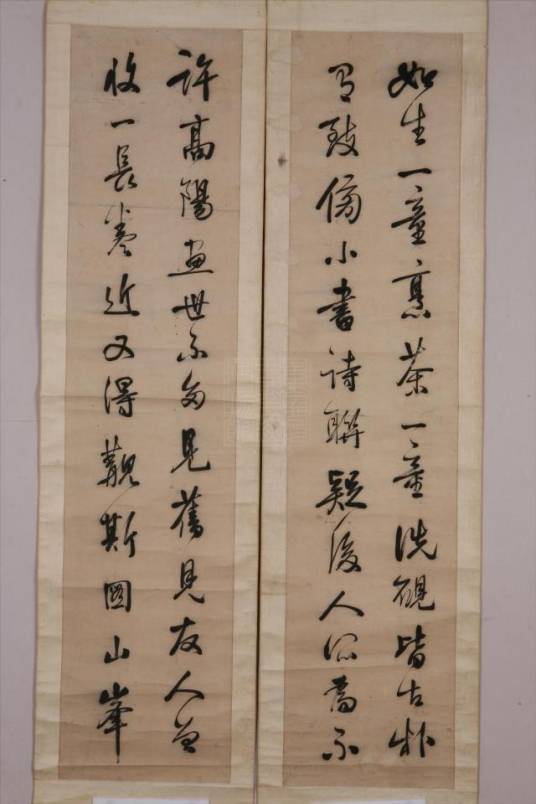 如生一童烹茶一童洗硯皆古朴
有致傍小書詩聯疑後人所為不
許高陽畫世不多見舊見友人曾
收一長卷近又得觀斯圖山峯